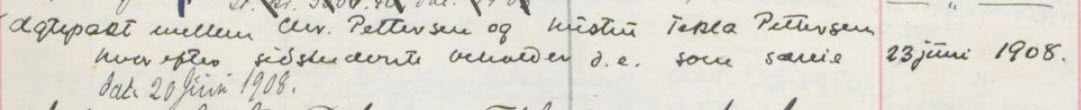 Ægtepakt mellem Chr. Pettersen og hustru Tekla Pettersen
hvorefter sidstnævnte beholder d.e. som særeie 23 juni 1908.
dat. 20 juni 1908.